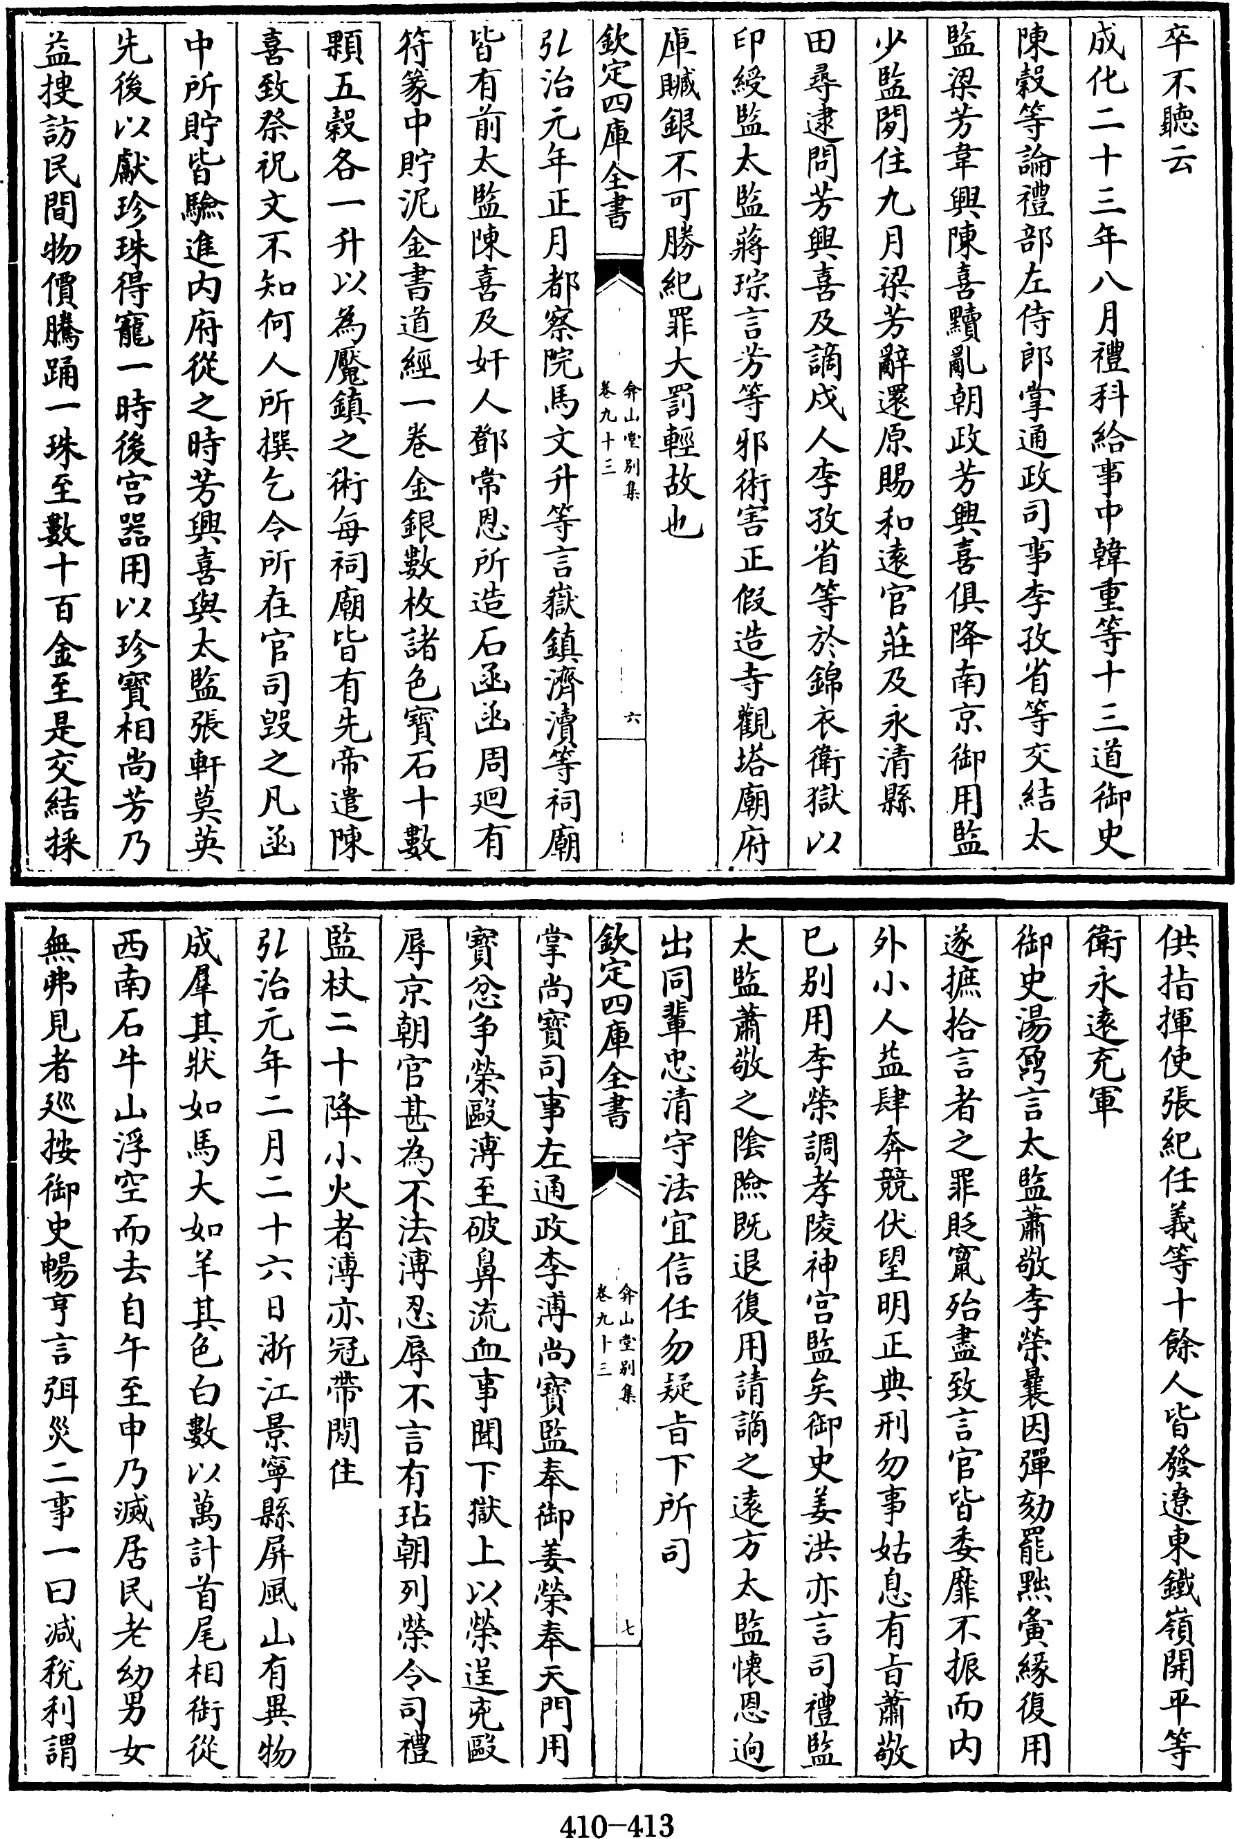 卒不聽云
成化二十三年八月禮科給事中韓重等十三道御史
陳穀等論禮部左侍郎掌通政司事李孜省等交結太
監梁芳韋興陳喜黷亂朝政芳興喜俱降南京御用監
少監閒住九月梁芳辭還原賜和遠官莊及永清縣
田尋逮問芳興喜及謫戍人李孜省等於錦衣衛獄以
印綬監太監蔣琮言芳等邪術害正假造寺觀塔廟府
庫贓銀不可勝紀罪大罰輕故也
欽定四庫全書
弇山堂别集
卷九十三
六
弘治元年正月都察院馬文升等言嶽鎮濟瀆等祠廟
皆有前太監陳喜及奸人鄧常恩所造石函函周廻有
符篆中貯泥金書道經一卷金銀數枚諸色寶石十數
顆五穀各一升以為魘鎮之術每祠廟皆有先帝遣陳
喜致祭祝文不知何人所撰乞令所在官司毀之凡函
中所貯皆驗進內府從之時芳興喜與太監張軒莫英
先後以獻珍珠得寵一時後宮器用以珍寶相尚芳乃
益搜訪民間物價騰踊一珠至數十百金至是交結採
供指揮使張紀任義等十餘人皆發遼東鐵嶺開平等
衛永遠充軍
御史湯鼐言太監蕭敬李榮曩因彈劾罷黜夤緣復用
遂摭拾言者之罪貶竄殆盡致言官皆委靡不振而内
外小人益肆奔競伏望明正典刑勿事姑息有㫖蕭敬
已别用李榮調孝陵神宮監矣御史姜洪亦言司禮監
太監蕭敬之陰險既退復用請謫之遠方太監懷恩逈
出同輩忠清守法宜信任勿疑㫖下所司
欽定四庫全書
弇山堂别集
卷九十三
七
掌尚寶司事左通政李溥尚寶監奉御姜榮奉天門用
寶忿爭榮毆溥至破鼻流血事聞下獄上以榮逞兇毆
辱京朝官甚為不法溥忍辱不言有玷朝列榮令司禮
監杖二十降小火者溥亦冠帶閒住
弘治元年二月二十六日浙江景寧縣屏風山有異物
成羣其狀如馬大如羊其色白數以萬計首尾相銜從
西南石牛山浮空而去自午至申乃滅居民老幼男女
無弗見者廵按御史暢亨言弭災二事一曰減稅利謂
410-413